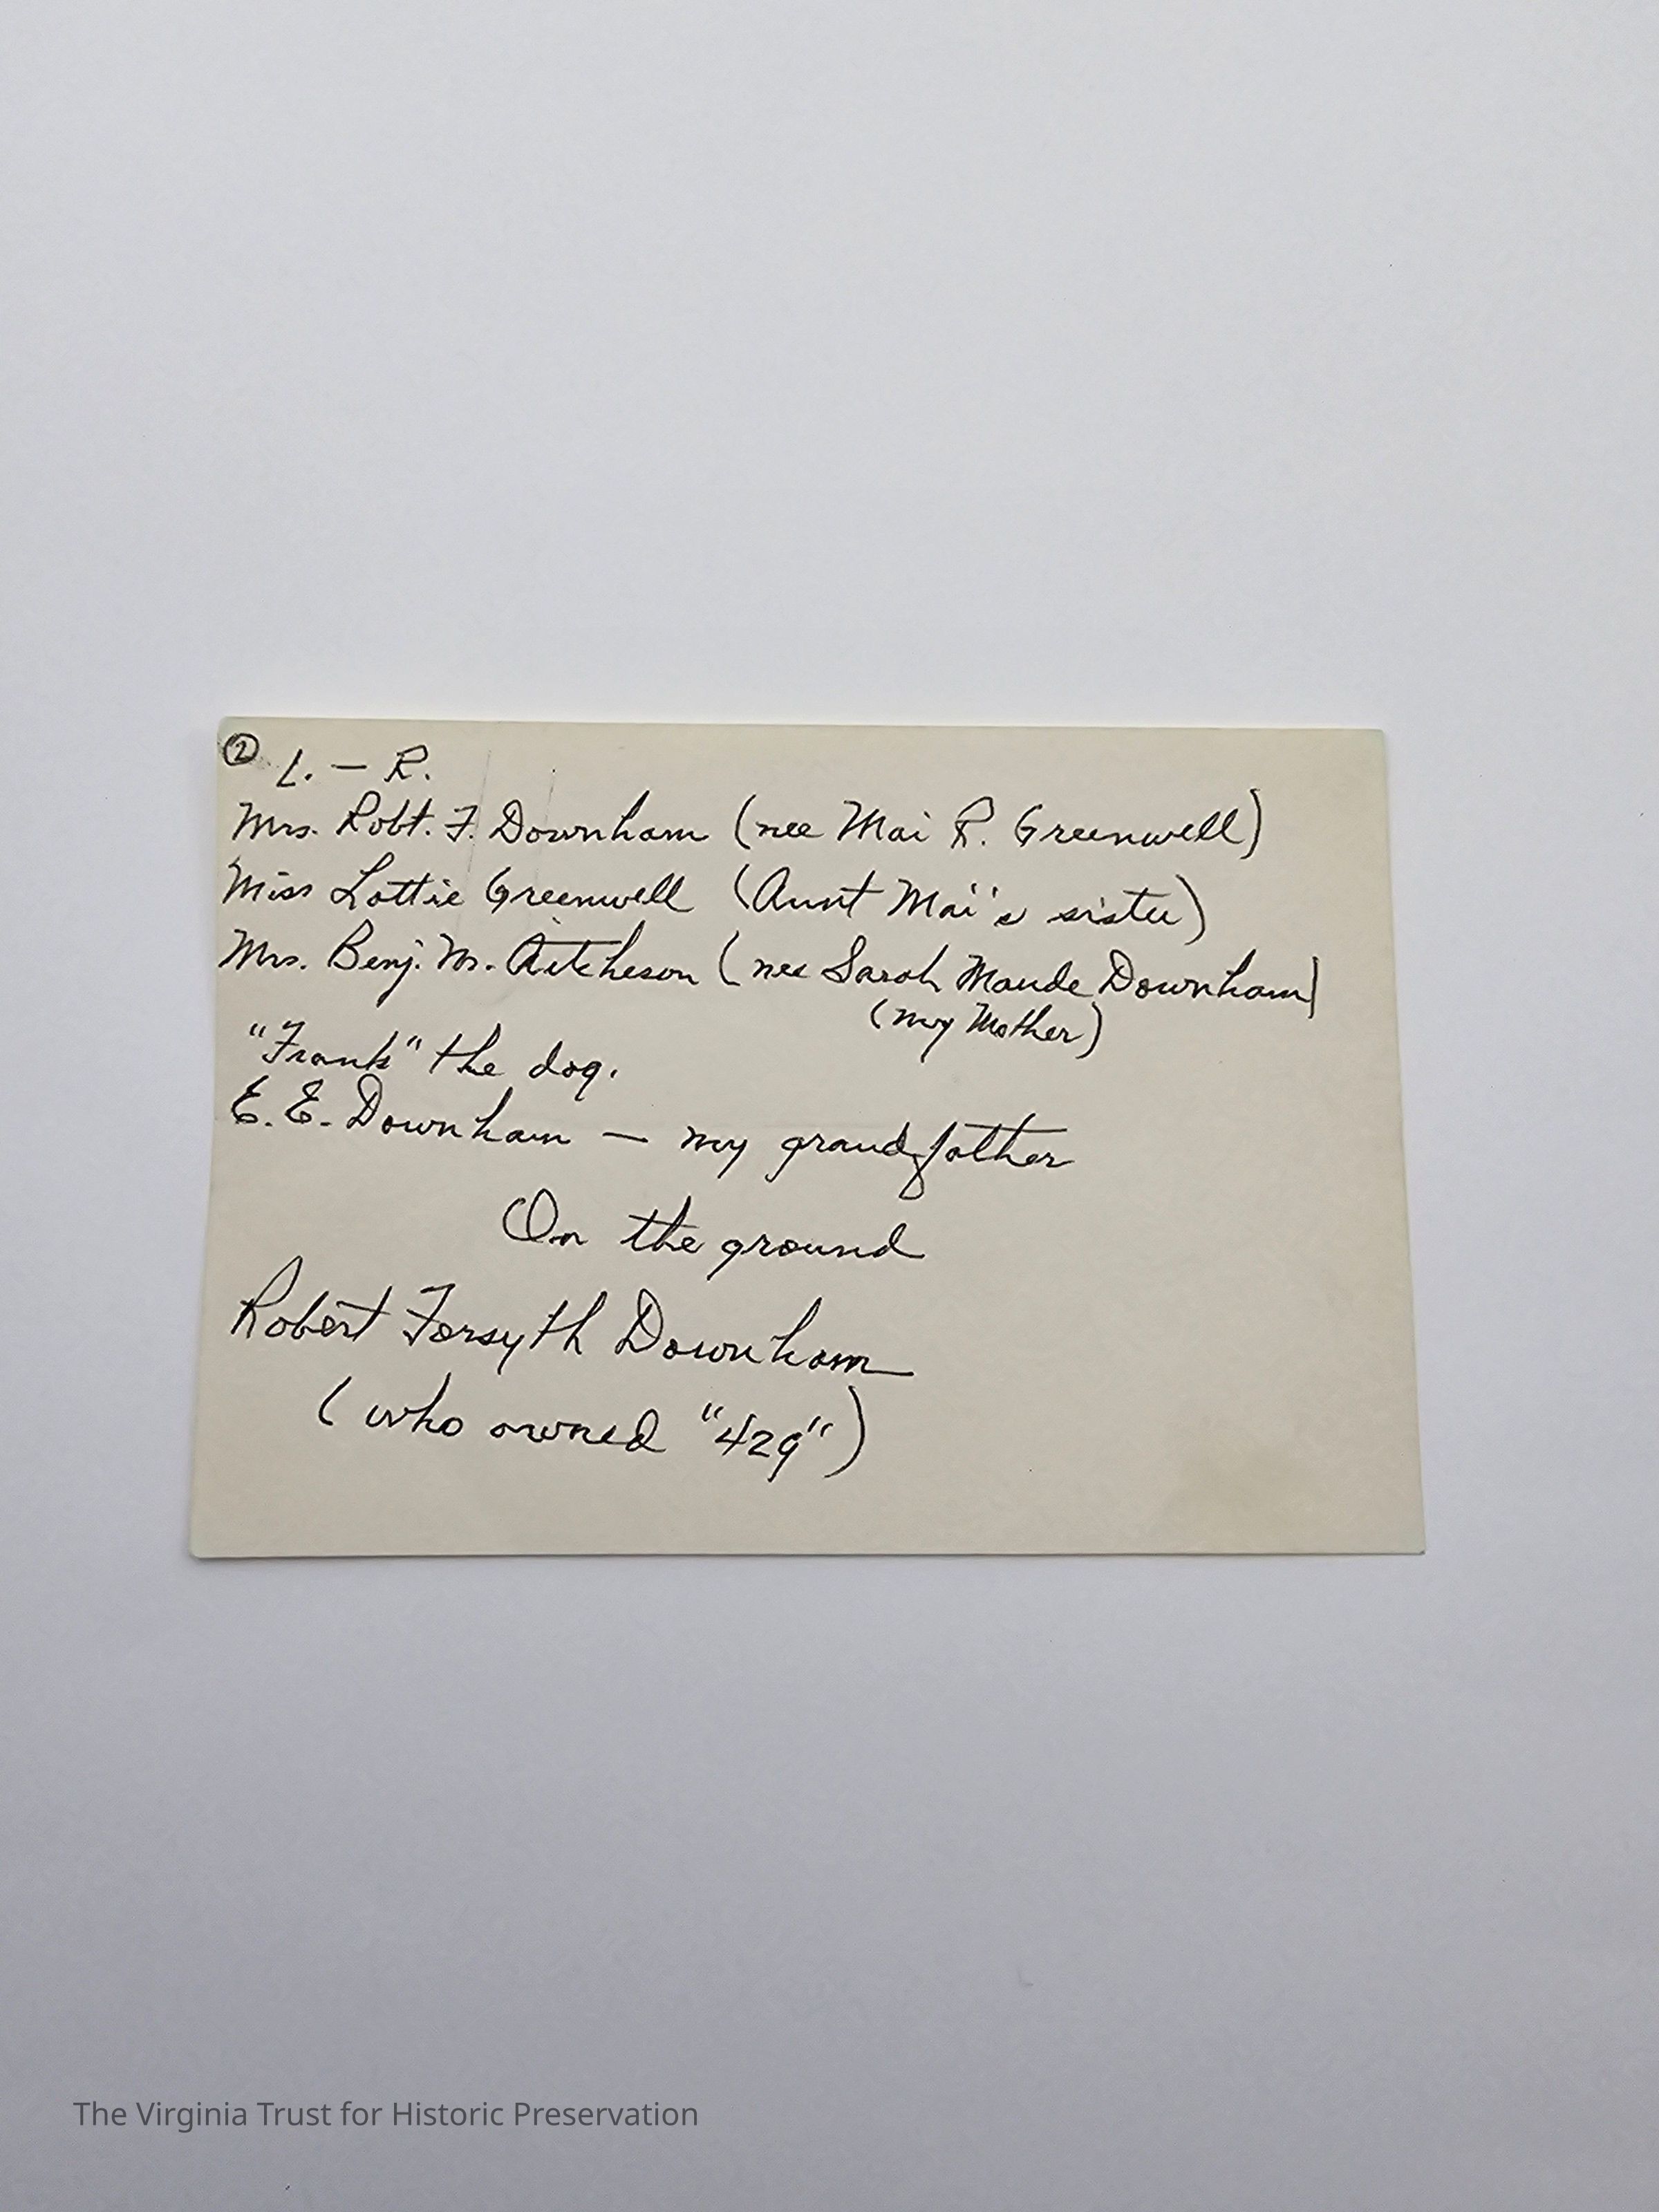 ② L. – R.
Mrs. Robt. F. Downham (nee Mai R. Greenwell)
Miss Lottie Greenwell (Aunt Mai's sister)
Mrs. Benj. M. Aitcheson (nee Sarah Maude Downham)
(my Mother)
"Frank" the dog.
E. E. Downham — my grandfather
On the ground
Robert Forsyth Downham
(who owned "429")
The Virginia Trust for Historic Preservation